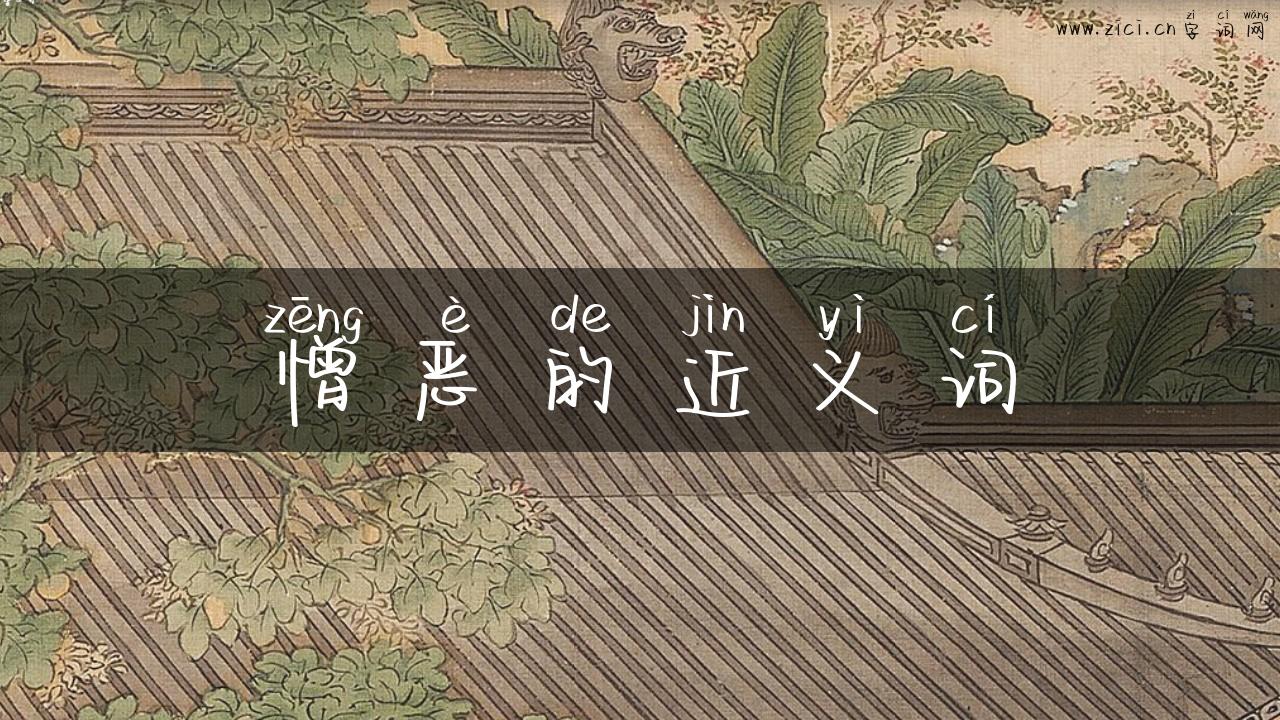 zì cí wǎng
www.zici.cn 字 词 网
zēng è de jìn yì cí
憎 恶 的 近 义 词